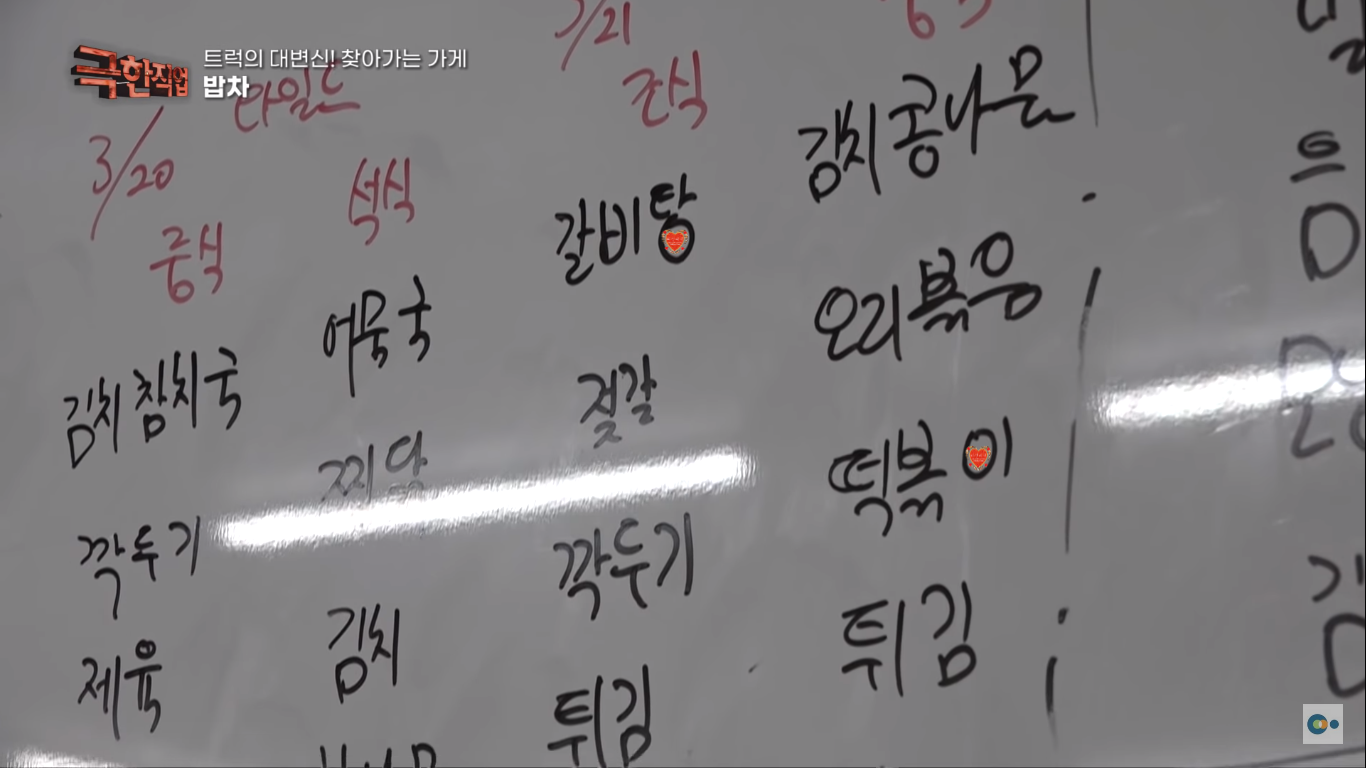 극한직업
트럭의 대변신! 찾아가는 가게
밥차
3/20
중식
김치참치국
깍두기
제육
석식
어묵국
찌닭
김치
3/21
조식
갈비탕
젓갈
깍두기
튀김
김치콩나물
오리볶음
떡볶이
튀김